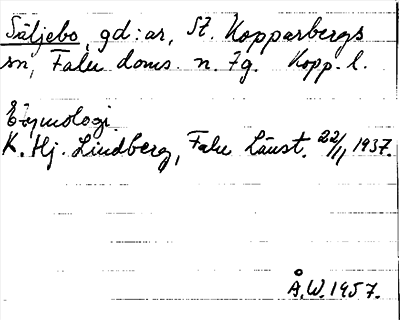 Säljebo, gd:ar, St. Kopparbergs
sn, Falu doms. n. tg. Kopp. l.
Etymologi.
K. Hj. Lindberg, Falu länst. 22/11 1937.
Å.W. 1957.